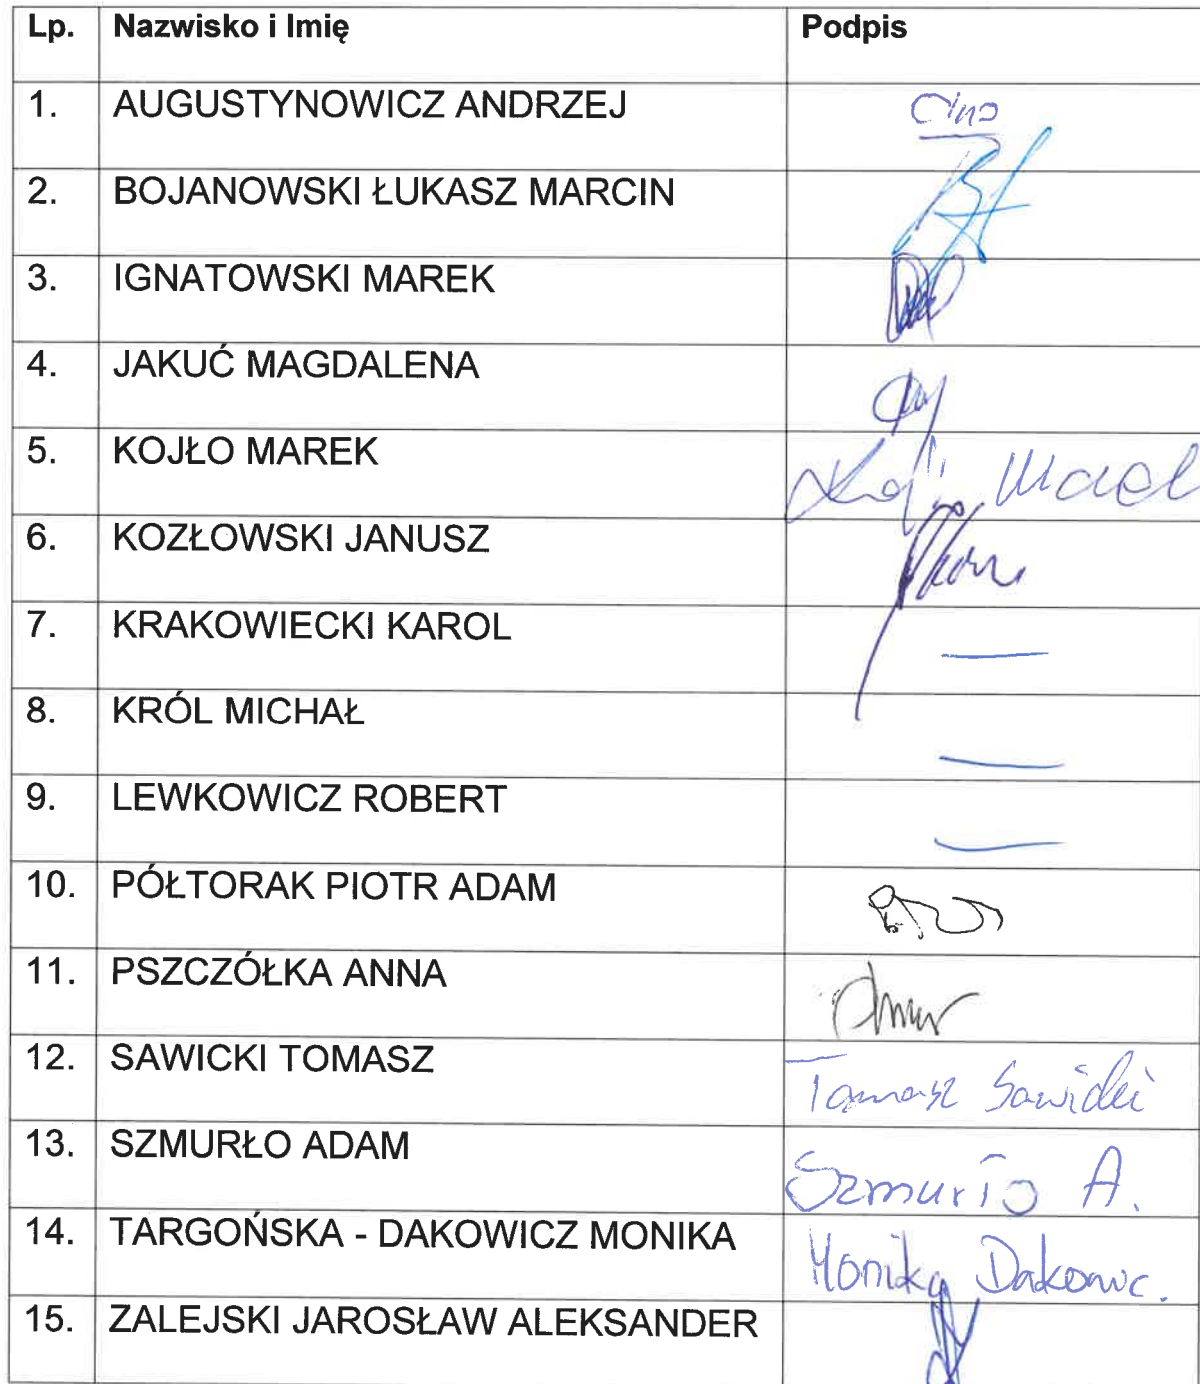 Lp. Nazwisko i Imię Podpis
1. AUGUSTYNOWICZ ANDRZEJ
2. BOJANOWSKI ŁUKASZ MARCIN
3. IGNATOWSKI MAREK
4. JAKUĆ MAGDALENA
5. KOJŁO MAREK
6. KOZŁOWSKI JANUSZ
7. KRAKOWIECKI KAROL —
8. KRÓL MICHAŁ —
9. LEWKOWICZ ROBERT —
10. PÓŁTORAK PIOTR ADAM
11. PSZCZÓŁKA ANNA
12. SAWICKI TOMASZ Tomasz Sawicki
13. SZMURŁO ADAM Szmurło A.
14. TARGOŃSKA - DAKOWICZ MONIKA Monika Dakowic.
15. ZALEJSKI JAROSŁAW ALEKSANDER